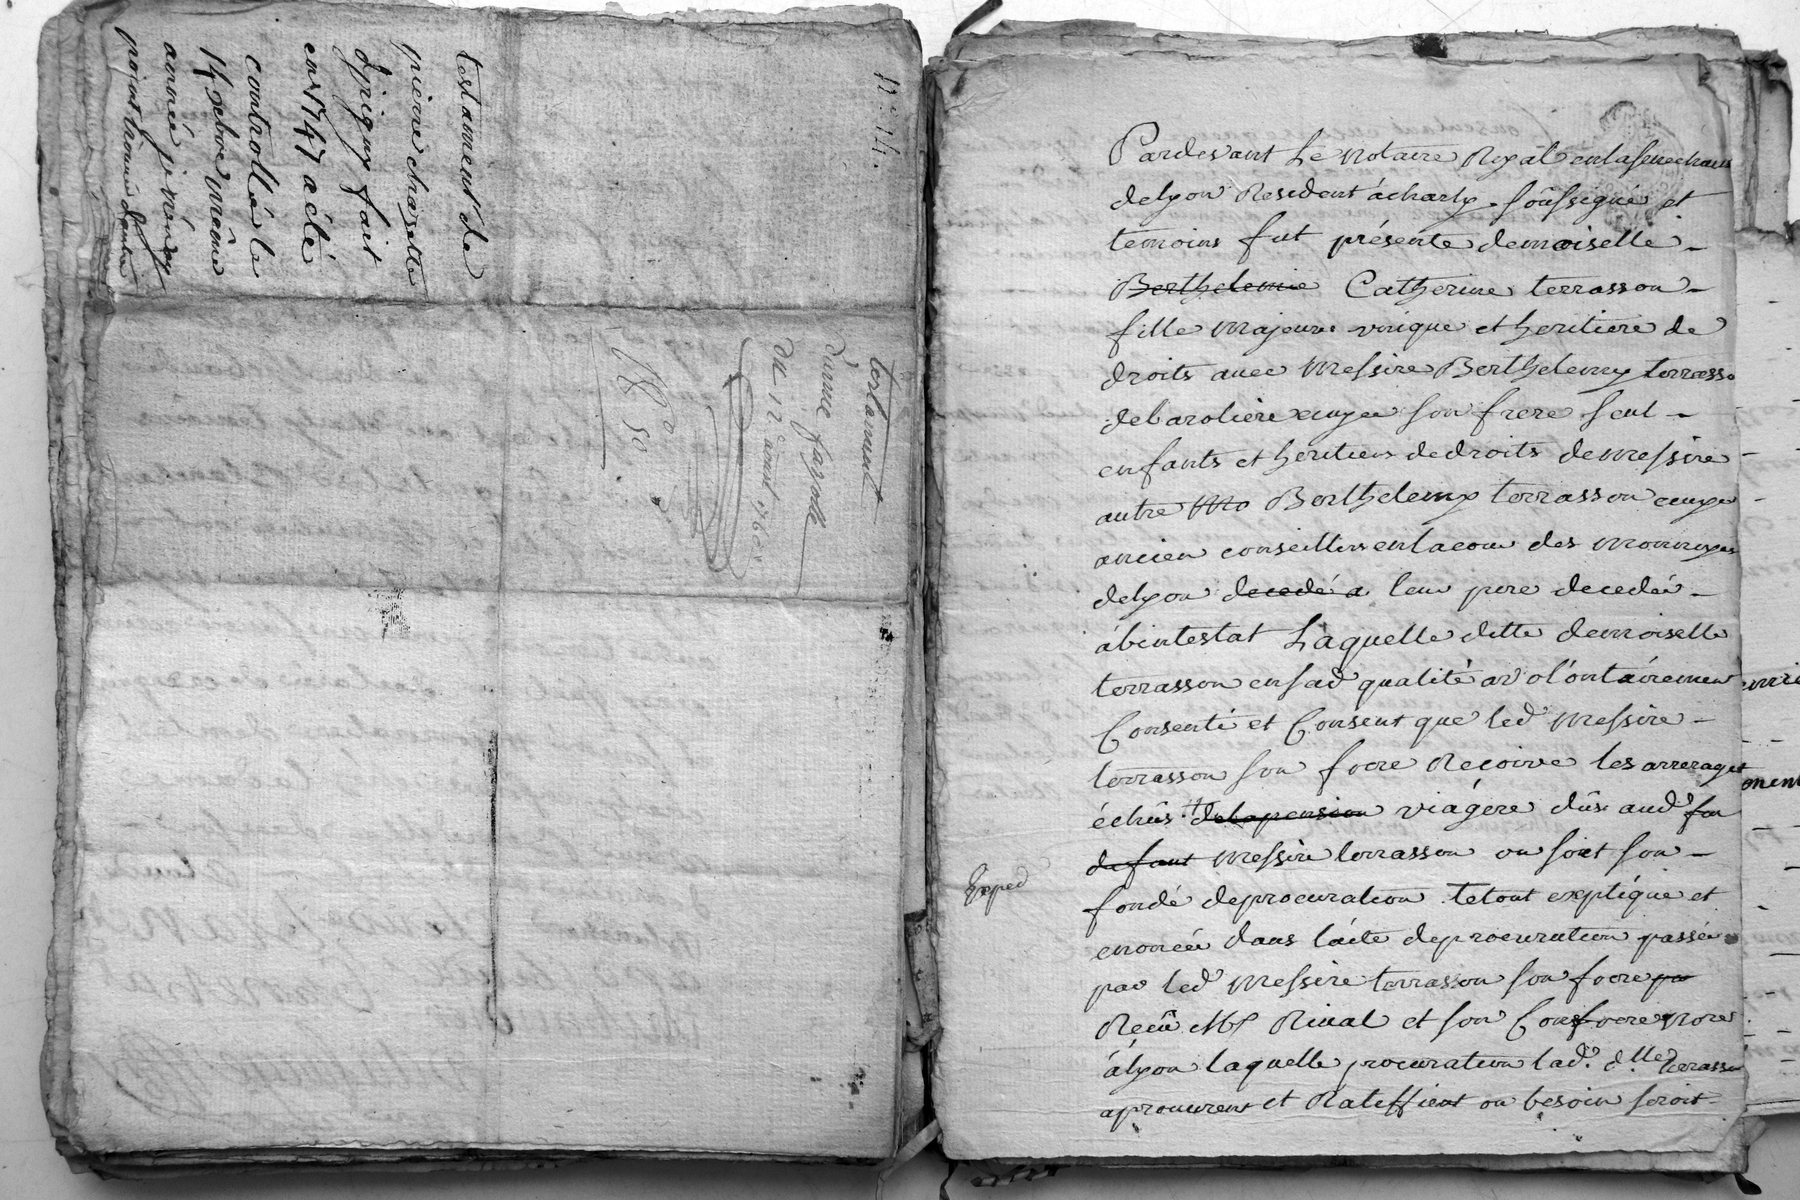 N° 14.
testament de
pierre chazette
d'prigny fait
en 1747 a été
controllé le
14 xbre meme
année
testament
d'anne fayolle
du 12e aoust 1760
Pardevant Le Notaire Royal en la senechaus
de lyon Resident á charly soûssigné et
temoins fut présente demoiselle
Berthelemie Catherine terrasson
fille majeure unique et heritiere de
droits avec Messire Berthelemy terrasso
de barolière ecuyer son frere seul
enfants et heritiers de droits de messire
autre Mo Berthelemy terrasson ecuye
ancien conseillers en la cour des monnoyes
de lyon decedé a leur pere decedé
ábintestat Laquelle ditte demoiselle
terrasson en sad qualité a volontairemen
Consenti et Consent que led Messire
terrasson son frere Reçoive les arrerages
échûs de la pension viágere dûs aud feu
defunt Messire terrasson ou soit son
fondé de procuration le tout expliqué et
enoncée dans l'acte de procuration passée
par led Messire terrasson son frere par
Reçu Mes Rival et son Confrere Nores
á lyon laquelle procuration lad. d.lle terrasson
aprouvent et Rateffient ou besoin seroit
Exped